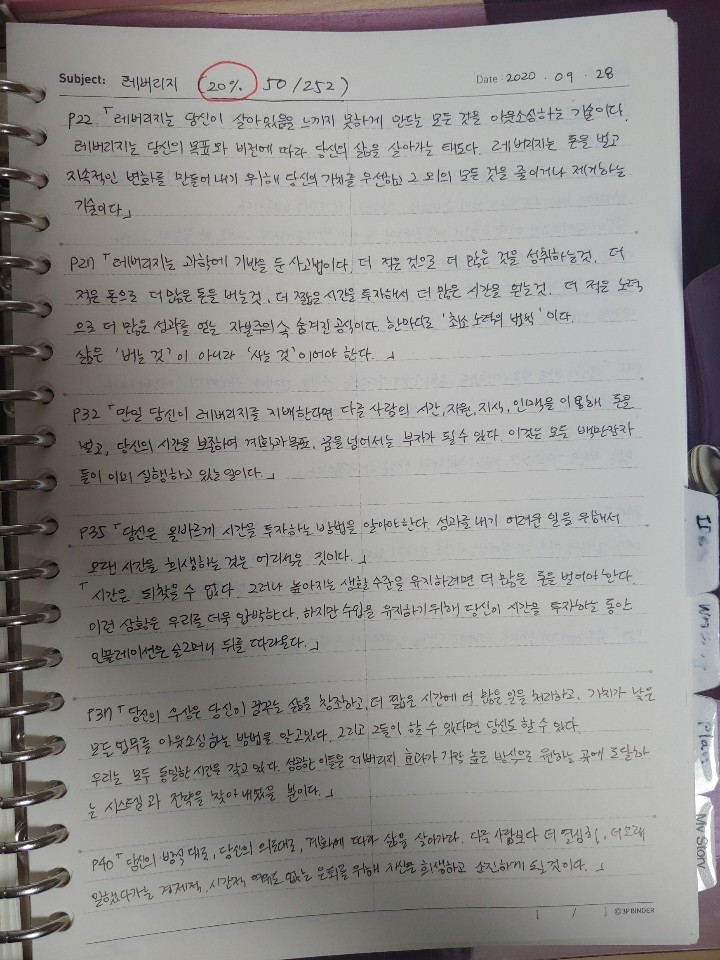 Subject: 레버리지 (20% 50/252) Date : 2020 . 09 . 28
P22 「레버리지는 당신이 살아있음을 느끼지 못하게 만드는 모든 것을 아웃소싱하는 기술이다.
레버리지는 당신의 목표와 비전에 따라 당신의 삶을 살아가는 태도다. 레버리지는 돈을 벌고
지속적인 변화를 만들어 내기 위해 당신의 가치를 우선하고 그 외의 모든 것을 줄이거나 제거하는
기술이다」
P27 「레버리지는 과학에 기반을 둔 사고법이다. 더 적은 것으로 더 많은 것을 성취하는것, 더
적은 돈으로 더 많은 돈을 버는것, 더 짧은 시간을 투자해서 더 많은 시간을 얻는것, 더 적은 노력
으로 더 많은 성과를 얻는 자본주의 속 숨겨진 공식이다. 한마디로 '최소 노력의 법칙' 이다.
삶은 '버는 것' 이 아니라 '사는 것' 이어야 한다. 」
P32 「만일 당신이 레버리지를 지배한다면 다른 사람의 시간, 자원, 지식, 인맥을 이용해 돈을
벌고, 당신의 시간을 보존하여 계획과 목표, 꿈을 넘어서는 부자가 될 수 있다. 이것은 모든 백만장자
들이 이미 실행하고 있는 일이다.」
P35 「당신은 올바르게 시간을 투자하는 방법을 알아야한다. 성과를 내기 어려운 일을 위해서
오랜 시간을 희생하는 것은 어리석은 짓이다.」
「시간은 되찾을 수 없다. 그러나 높아지는 생활 수준을 유지하려면 더 많은 돈을 벌어야 한다.
이런 상황은 우리를 더욱 압박한다. 하지만 수입을 유지하기위해 당신이 시간을 투자하는 동안
인플레이션은 슬그머니 뒤를 따라온다.」
P37 「당신의 우상은 당신이 꿈꾸는 삶을 창조하고, 더 짧은 시간에 더 많은 일을 처리하고, 가치가 낮은
모든 업무를 아웃소싱하는 방법을 알고있다. 그리고 그들이 할 수 있다면 당신도 할 수 있다.
우리는 모두 동일한 시간을 갖고 있다. 성공한 이들은 레버리지 효과가 가장 높은 방식으로 원하는 곳에 도달하
는 시스템과 전략을 찾아 내었을 뿐이다.」
P40 「당신의 방식대로, 당신의 의도대로, 계획에 따라 삶을 살아가라. 다른 사람보다 더 열심히, 더 오래
일했다가는 경제적, 시간적 여유도 없는 은퇴를 위해 자신을 희생하고 소진하게 될 것이다. 」
/
©3P BINDER
Plan
My Story